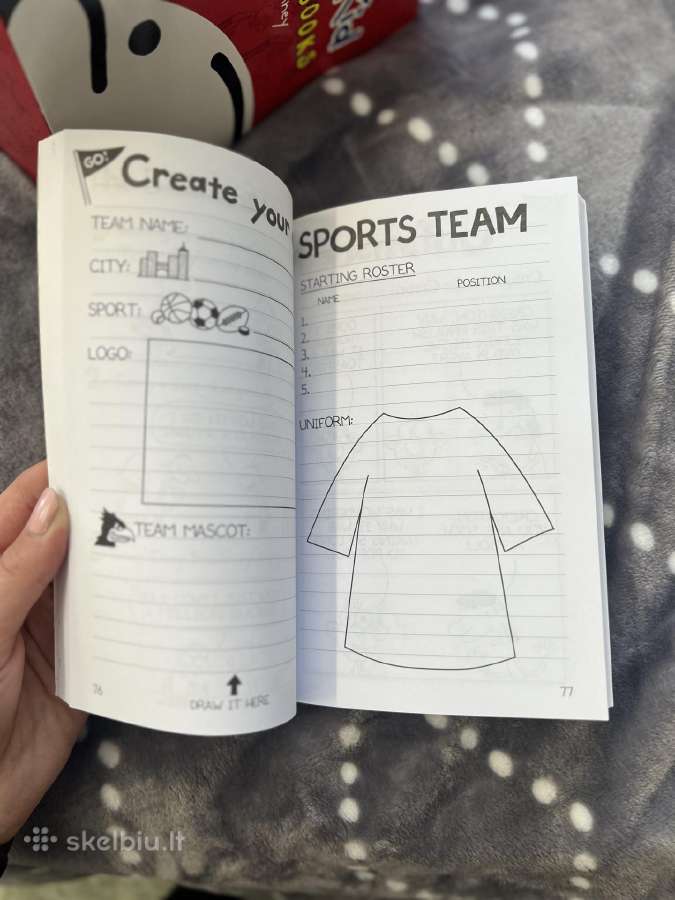 ney
OOKS
GO!
Create your
TEAM NAME:
CITY:
SPORT:
LOGO:
TEAM MASCOT:
76
DRAW IT HERE
SPORTS TEAM
STARTING ROSTER
NAME POSITION
1.
2.
3.
4.
5.
UNIFORM:
77
skelbiu.lt